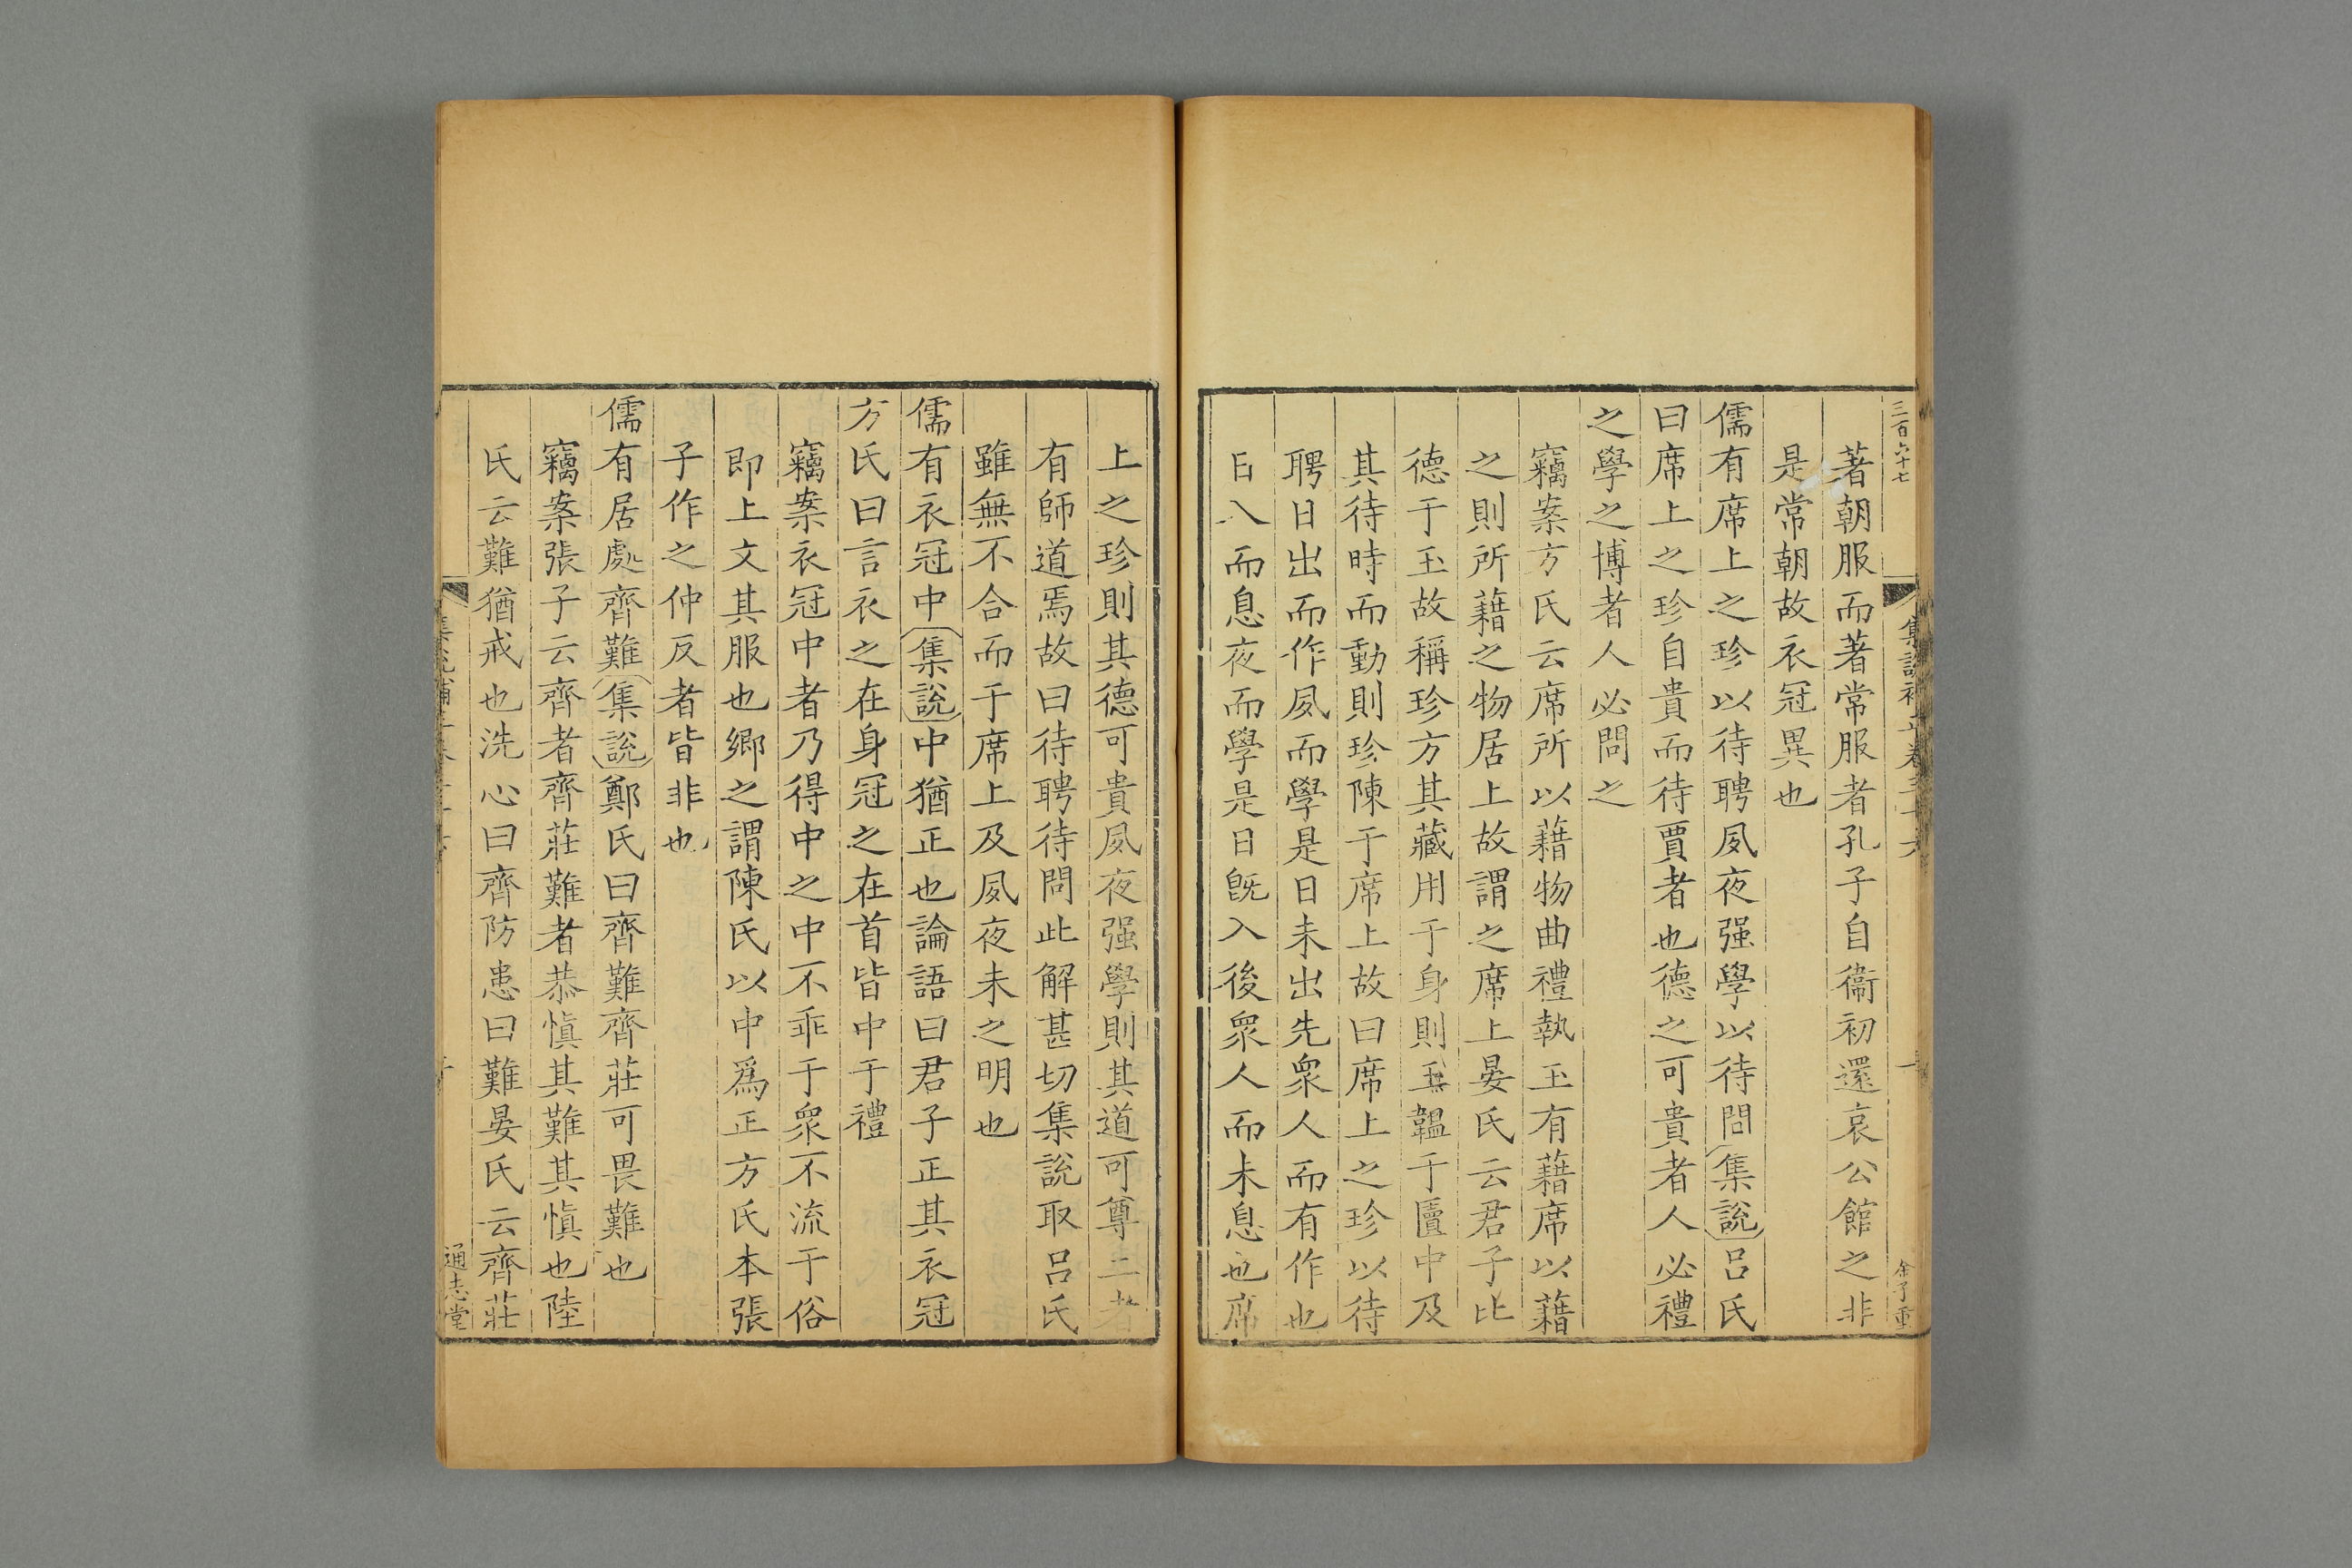 三百六十七
金子重
著朝服而著常服者孔子自衞初還哀公館之非
是常朝故衣冠異也
儒有席上之珍以待聘夙夜强學以待問集說呂氏
曰席上之珍自貴而待賈者也德之可貴者人必禮
之學之博者人必問之
竊案方氏云席所以藉物曲禮執玉有藉席以藉
之則所藉之物居上故謂之席上晏氏云君子比
德于玉故稱珍方其藏用于身則玉韞于匵中及
其待時而動則珍陳于席上故曰席上之珍以待
聘日出而作夙而學是日未出先衆人而有作也
日入而息夜而學是日旣入後衆人而未息也席
上之珍則其德可貴夙夜强學則其道可尊二者
有師道焉故曰待聘待問此解甚切集說取呂氏
雖無不合而于席上及夙夜未之明也
儒有衣冠中集說中猶正也論語曰君子正其衣冠
方氏曰言衣之在身冠之在首皆中于禮
竊案衣冠中者乃得中之中不乖于衆不流于俗
即上文其服也鄉之謂陳氏以中爲正方氏本張
子作之仲反者皆非也
儒有居處齊難集說鄭氏曰齊難齊莊可畏難也
竊案張子云齊者齊莊難者恭愼其難其愼也陸
氏云難猶戒也洗心曰齊防患曰難晏氏云齊莊
通志堂